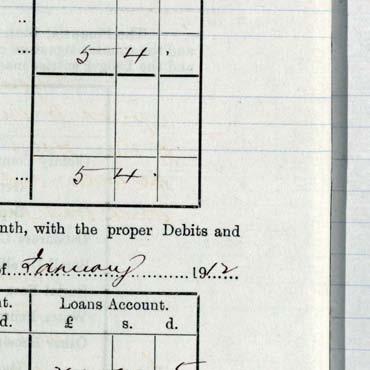 ... 5 4 .
... 5 4 .
nth, with the proper Debits and
of January 1912
t. Loans Account.
d. £ s. d.